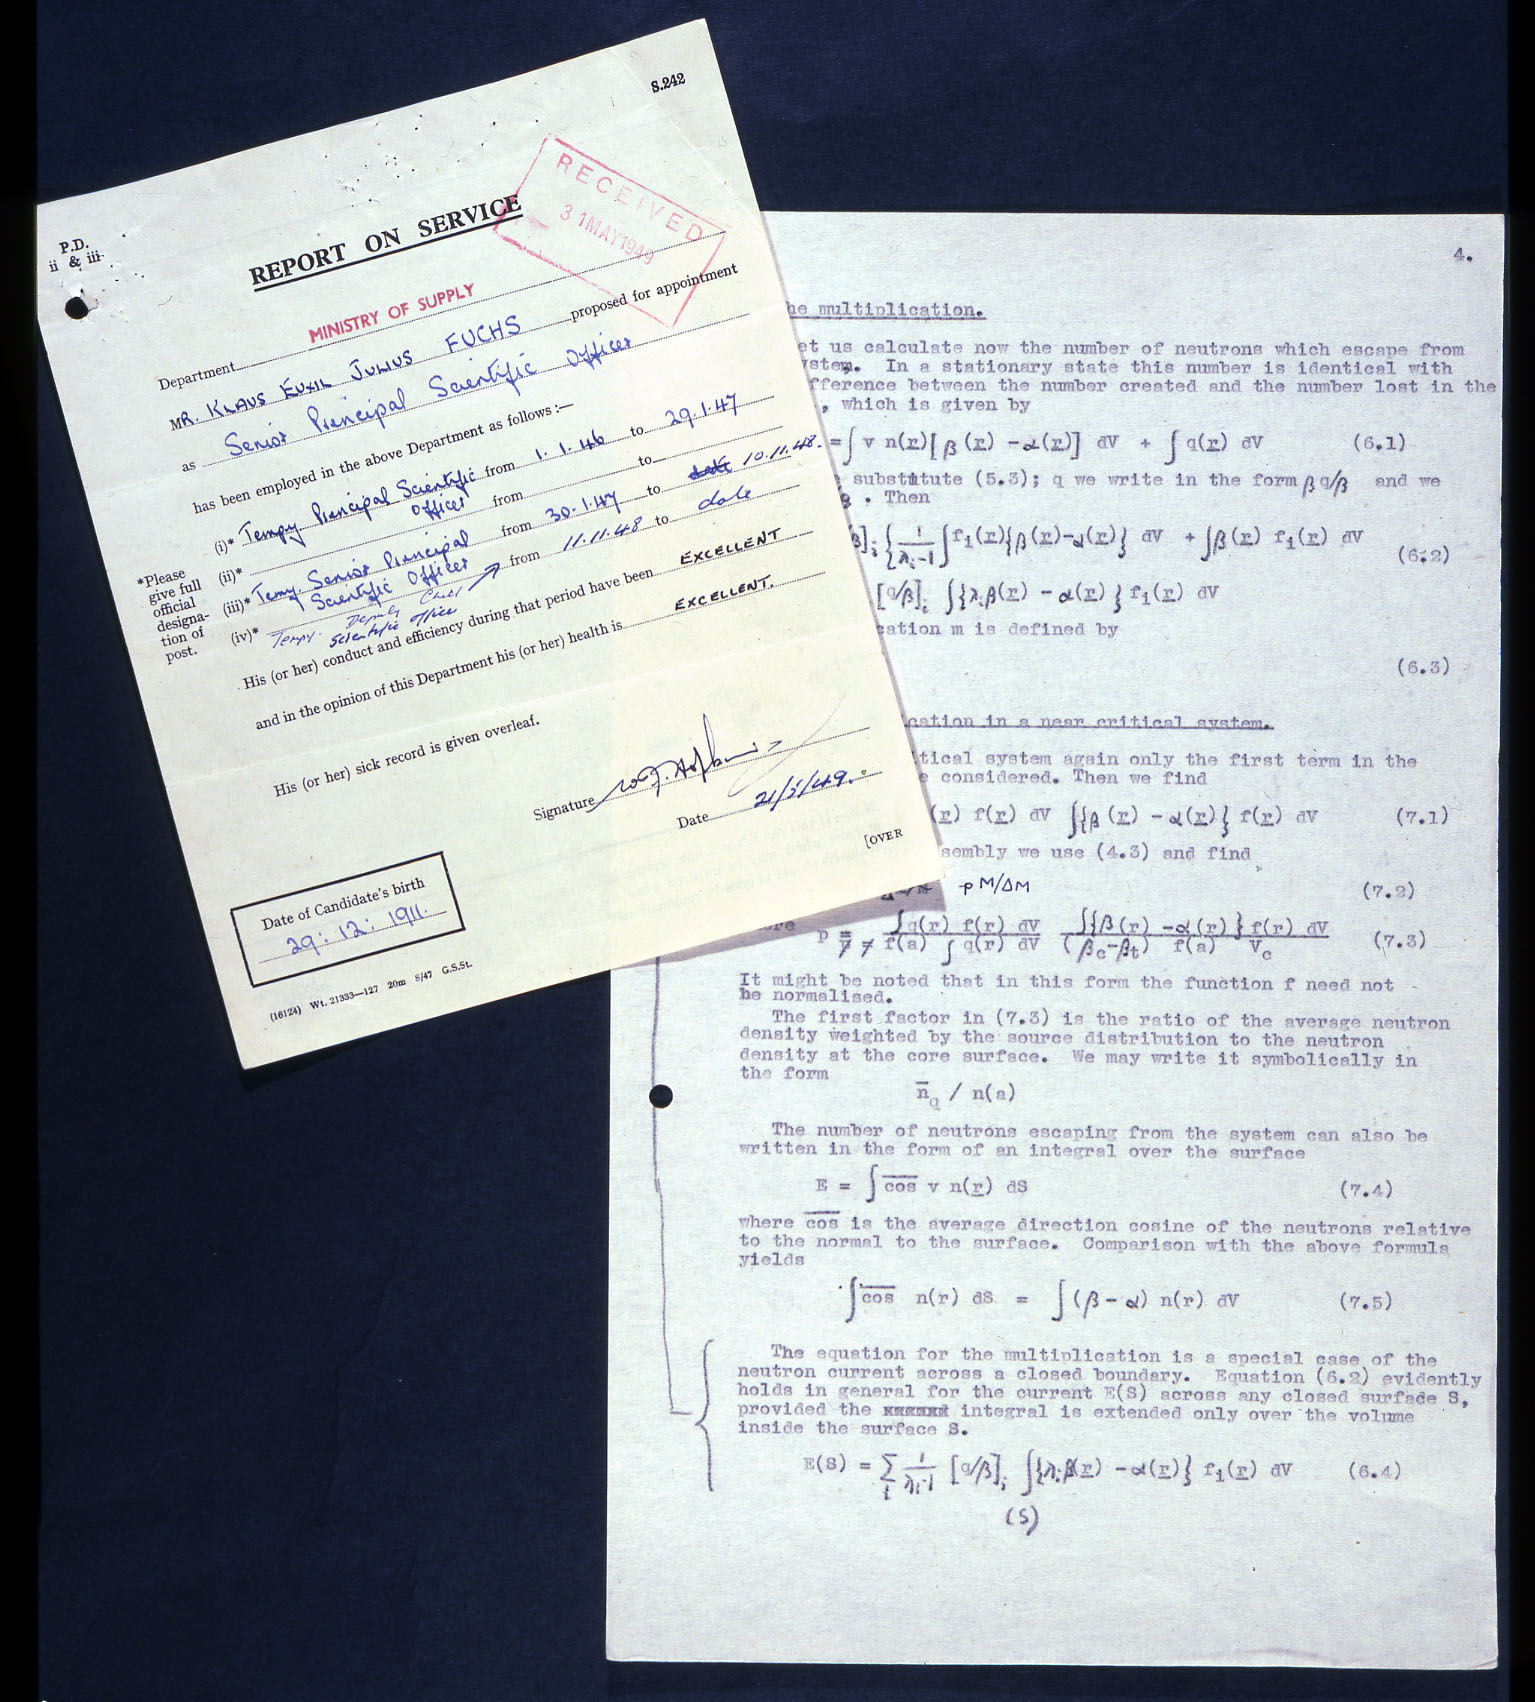 S.242
P.D.
ii & iii.
REPORT ON SERVICE
RECEIVED
31 MAY 1949
Department MINISTRY OF SUPPLY
MR. KLAUS EMIL JULIUS FUCHS proposed for appointment
as Senior Principal Scientific Officer
has been employed in the above Department as follows :—
(i)* Tempy Principal Scientific Officer from 1.1.46 to 29.1.47
(ii)* from to
(iii)* Temy. Senior Principal Scientific Officer from 30.1.47 to date 10.11.48.
(iv)* Tempy. Deputy Chief Scientific Officer from 11.11.48 to date
*Please
give full
official
designa-
tion of
post.
His (or her) conduct and efficiency during that period have been EXCELLENT
and in the opinion of this Department his (or her) health is EXCELLENT.
His (or her) sick record is given overleaf.
Signature
Date 21/5/49.
[OVER
Date of Candidate's birth
29: 12: 1911.
(16124) Wt. 21333—127 20m 8/47 G.S.St.
4.
he multiplication.
et us calculate now the number of neutrons which escape from
ystem. In a stationary state this number is identical with
fference between the number created and the number lost in the
, which is given by
= ∫ v n(r)[β(r) -α(r)] dV + ∫ q(r) dV (6.1)
substitute (5.3); q we write in the form β q/β and we
β . Then
β]i {1/λi-1 ∫f1(r){β(r)-α(r)} dV + ∫β(r) f1(r) dV (6.2)
[q/β]i ∫{λiβ(r) - α(r)} f1(r) dV
cation m is defined by
(6.3)
cation in a near critical system.
tical system again only the first term in the
e considered. Then we find
(r) f(r) dV ∫{β(r) -α(r)} f(r) dV (7.1)
sembly we use (4.3) and find
p M/ΔM (7.2)
ere p = ∫q(r) f(r) dV / f(a) ∫ q(r) dV ∫{β(r) -α(r)} f(r) dV / (βc-βt) f(a) Vc (7.3)
It might be noted that in this form the function f need not
be normalised.
The first factor in (7.3) is the ratio of the average neutron
density weighted by the source distribution to the neutron
density at the core surface. We may write it symbolically in
the form
n̄q / n(a)
The number of neutrons escaping from the system can also be
written in the form of an integral over the surface
E = ∫ c̅o̅s̅ v n(r) dS (7.4)
where c̅o̅s̅ is the average direction cosine of the neutrons relative
to the normal to the surface. Comparison with the above formula
yields
∫c̅o̅s̅ n(r) dS = ∫(β-α) n(r) dV (7.5)
The equation for the multiplication is a special case of the
neutron current across a closed boundary. Equation (6.2) evidently
holds in general for the current E(S) across any closed surface S,
provided the integral is extended only over the volume
inside the surface S.
E(S) = Σi 1/λi-1 [q/β]i ∫{λiβ(r) -α(r)} f1(r) dV (6.4)
(S)